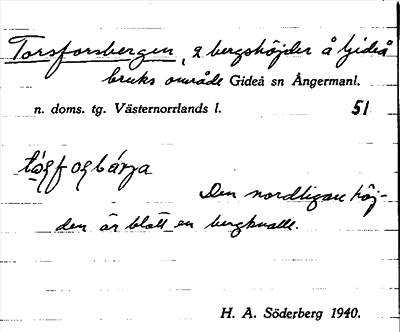 Torsforsbergen, 2 bergshöjder å Gideå
bruks område Gideå sn Ångermanl.
n. doms. tg. Västernorrlands l. 51
Den nordligare höj-
den är blott en bergknalle.
H. A. Söderberg 1940.